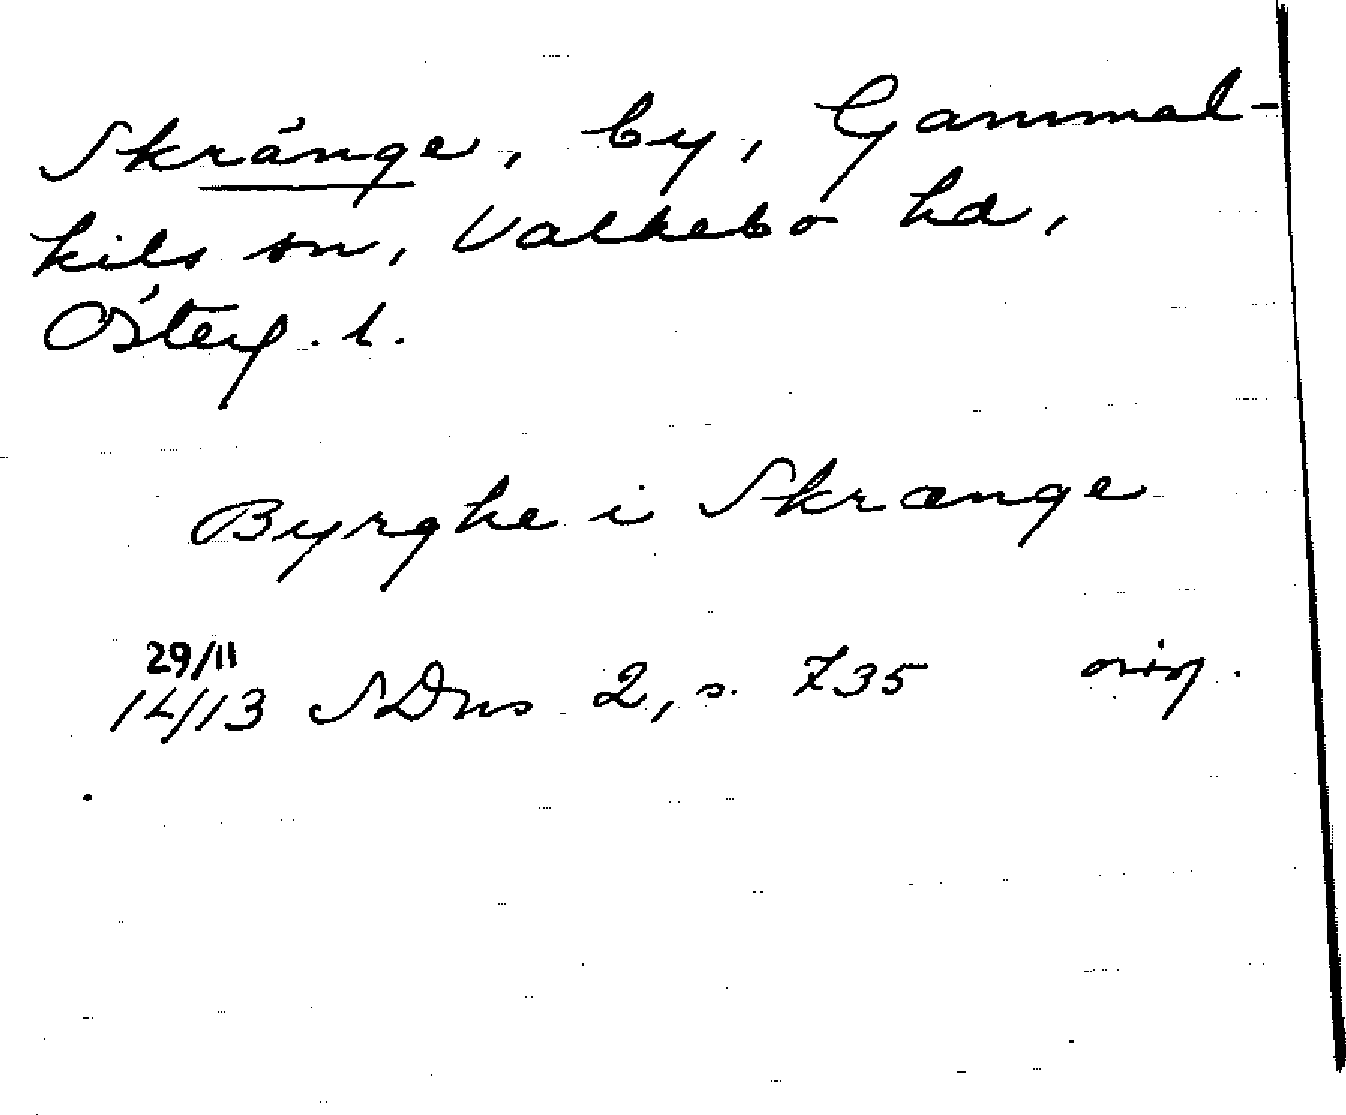 Skränge, by, Gammal-
kils sn, Valkebo hd,
Österg. l.
Byrghe i Skrænge
29/11
14/13 SDns 2, s. 735 orig.